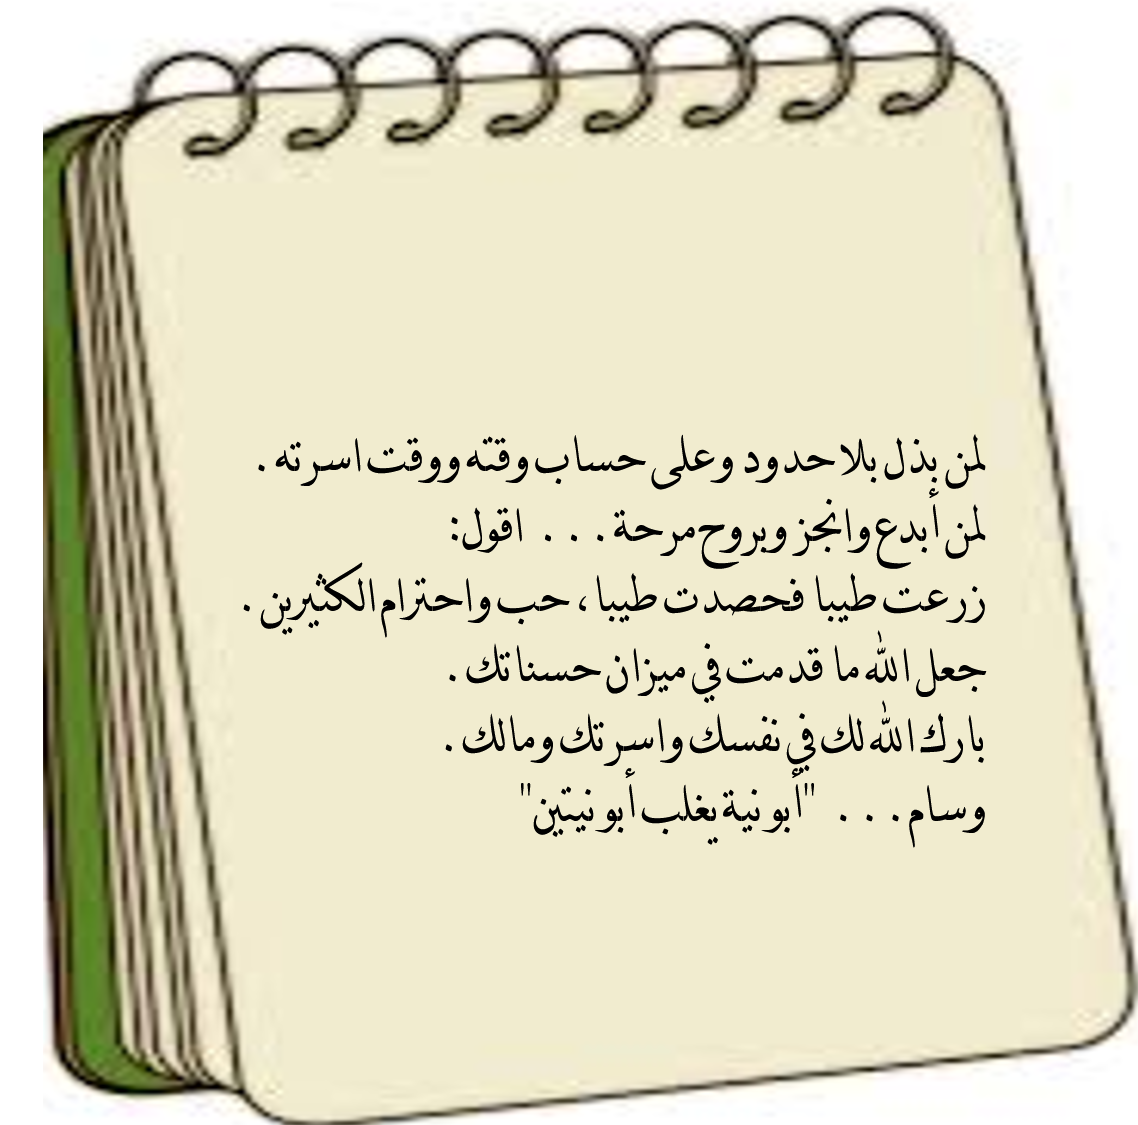 لمن بذل بلا حدود وعلى حساب وقته ووقت اسرته .
لمن أبدع وانجز وبروح مرحة . . . اقول:
زرعت طيبا فحصدت طيبا ، حب واحترام الكثيرين .
جعل الله ما قدمت في ميزان حسناتك .
بارك الله لك في نفسك واسرتك ومالك .
وسام . . . "أبو نية يغلب أبو نيتين"